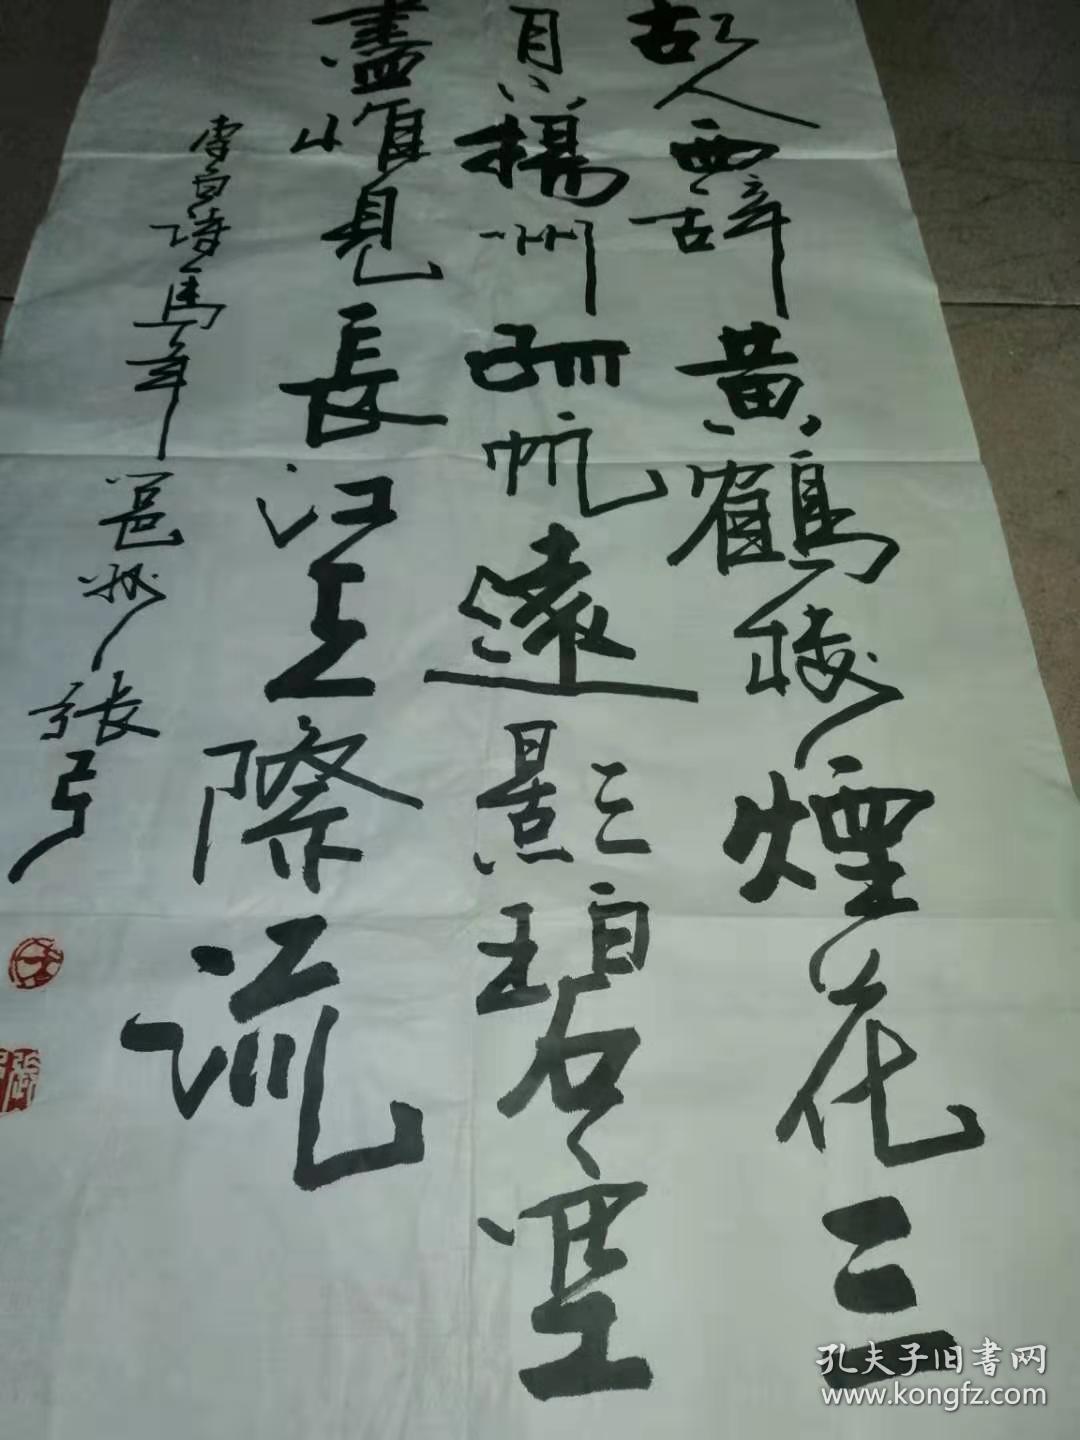 故人西辞黄鶴楼煙花三
月下揚州孤帆遠影碧空
盡惟見長江天際流
李白诗馬年邕州張弓
孔夫子旧書网
www.kongfz.com